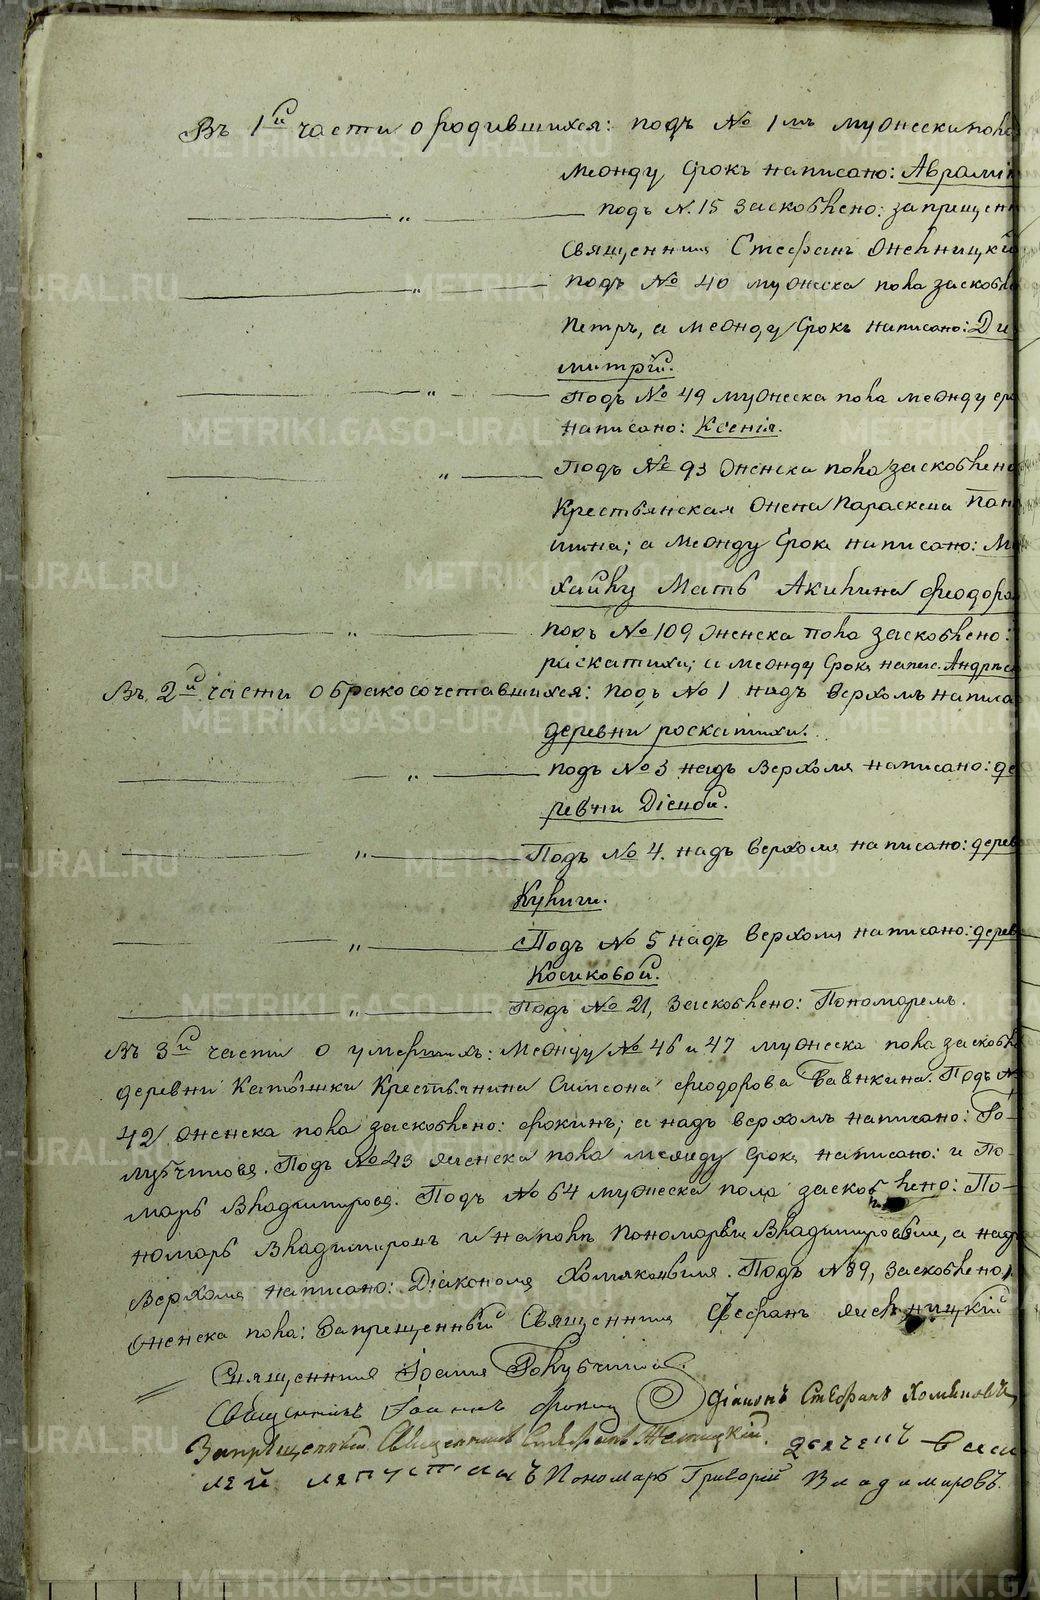 Въ 1й части о родившихся: подъ № 1мъ мужеска пола
между строкъ написано: Аврамій
" подъ №. 15 заскоблено: запрещенн
священникъ Стефанъ Желницкій
" подъ № 40 мужеска пола заскобле
Петръ, а между строкъ написано: Ди
митрій.
" Подъ № 49 мужеска пола между стро
написано: Ксенія.
" Подъ № 93 женска пола заскоблено
Крестьянская жена Параскева Пан
шина; а между строкъ написано: Ми
хайлу Мать Акилина Феодоро
" подъ № 109 женска пола заскоблено:
раскатихи; а между строкъ напис. Андреа
Въ 2й части о бракосочетавшихся: подъ № 1 надъ верхомъ написа
деревни роскатихи.
" подъ № 3 надъ верхомъ написано: де
ревни
" Подъ № 4. надъ верхомъ написано: дерев
" Подъ № 5 надъ верхомъ написано: дерев
Косиковой.
" Подъ № 21, заскоблено: Пономаремъ.
Въ 3й части о умершихъ: между № 46 и 47 мужеска пола заскобле
деревни Катышки Крестьянина Симеона Феодорова Подъ №
42 женска пола заскоблено: Фокинъ; а надъ верхомъ написано: Го-
лубчиковъ. Подъ № 43 женска пола между строкъ написано: и По-
марь Владимировъ. Подъ № 64 мужеска пола заскоблено: По-
номарь Владимиромъ и Владимировымъ, а надъ
верхомъ написано: Діакономъ Хомяковымъ. Подъ № 89, заскоблено,
женска пола: Запрещенный Священникъ Стефанъ Желницкій
Священникъ Іоаннъ Голубчиковъ.
Священникъ Іоаннъ Фокинъ Діаконъ Стефанъ Хомяковъ
Запрещенный Священникъ Стефанъ Желницкій. дьячекъ Васи
лей Ляпустинъ Пономарь Григорій Владимировъ.